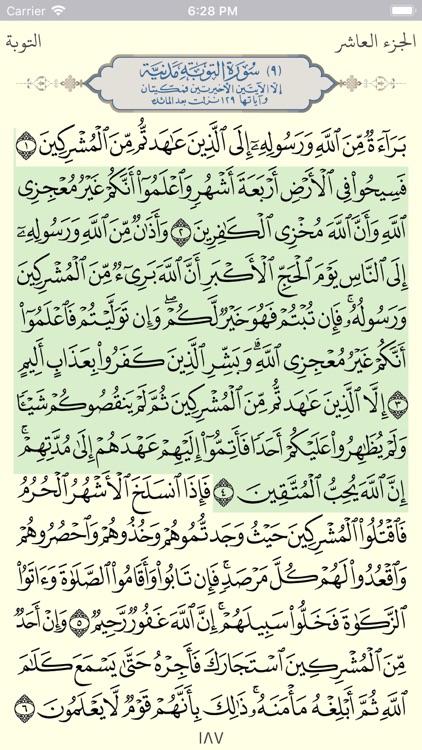 Carrier 6:28 PM
الجزء العاشر التوبة
(٩) سُورَةُ التَّوْبَةِ مَدَنِيَّة
إلا الآيتين الأخيرتين فمكيتان
وآياتها ١٢٩ نزلت بعد المائدة
بَرَآءَةٌ مِّنَ ٱللَّهِ وَرَسُولِهِۦٓ إِلَى ٱلَّذِينَ عَٰهَدتُّم مِّنَ ٱلْمُشْرِكِينَ ١
فَسِيحُوا۟ فِى ٱلْأَرْضِ أَرْبَعَةَ أَشْهُرٍ وَٱعْلَمُوٓا۟ أَنَّكُمْ غَيْرُ مُعْجِزِى
ٱللَّهِ وَأَنَّ ٱللَّهَ مُخْزِى ٱلْكَٰفِرِينَ ٢ وَأَذَٰنٌ مِّنَ ٱللَّهِ وَرَسُولِهِۦٓ
إِلَى ٱلنَّاسِ يَوْمَ ٱلْحَجِّ ٱلْأَكْبَرِ أَنَّ ٱللَّهَ بَرِىٓءٌ مِّنَ ٱلْمُشْرِكِينَ
وَرَسُولُهُۥ ۚ فَإِن تُبْتُمْ فَهُوَ خَيْرٌ لَّكُمْ ۖ وَإِن تَوَلَّيْتُمْ فَٱعْلَمُوٓا۟
أَنَّكُمْ غَيْرُ مُعْجِزِى ٱللَّهِ ۗ وَبَشِّرِ ٱلَّذِينَ كَفَرُوا۟ بِعَذَابٍ أَلِيمٍ
٣ إِلَّا ٱلَّذِينَ عَٰهَدتُّم مِّنَ ٱلْمُشْرِكِينَ ثُمَّ لَمْ يَنقُصُوكُمْ شَيْـًٔا
وَلَمْ يُظَٰهِرُوا۟ عَلَيْكُمْ أَحَدًا فَأَتِمُّوٓا۟ إِلَيْهِمْ عَهْدَهُمْ إِلَىٰ مُدَّتِهِمْ ۚ
إِنَّ ٱللَّهَ يُحِبُّ ٱلْمُتَّقِينَ ٤ فَإِذَا ٱنسَلَخَ ٱلْأَشْهُرُ ٱلْحُرُمُ
فَٱقْتُلُوا۟ ٱلْمُشْرِكِينَ حَيْثُ وَجَدتُّمُوهُمْ وَخُذُوهُمْ وَٱحْصُرُوهُمْ
وَٱقْعُدُوا۟ لَهُمْ كُلَّ مَرْصَدٍ ۚ فَإِن تَابُوا۟ وَأَقَامُوا۟ ٱلصَّلَوٰةَ وَءَاتَوُا۟
ٱلزَّكَوٰةَ فَخَلُّوا۟ سَبِيلَهُمْ ۚ إِنَّ ٱللَّهَ غَفُورٌ رَّحِيمٌ ٥ وَإِنْ أَحَدٌ
مِّنَ ٱلْمُشْرِكِينَ ٱسْتَجَارَكَ فَأَجِرْهُ حَتَّىٰ يَسْمَعَ كَلَٰمَ
ٱللَّهِ ثُمَّ أَبْلِغْهُ مَأْمَنَهُۥ ۚ ذَٰلِكَ بِأَنَّهُمْ قَوْمٌ لَّا يَعْلَمُونَ ٦
١٨٧